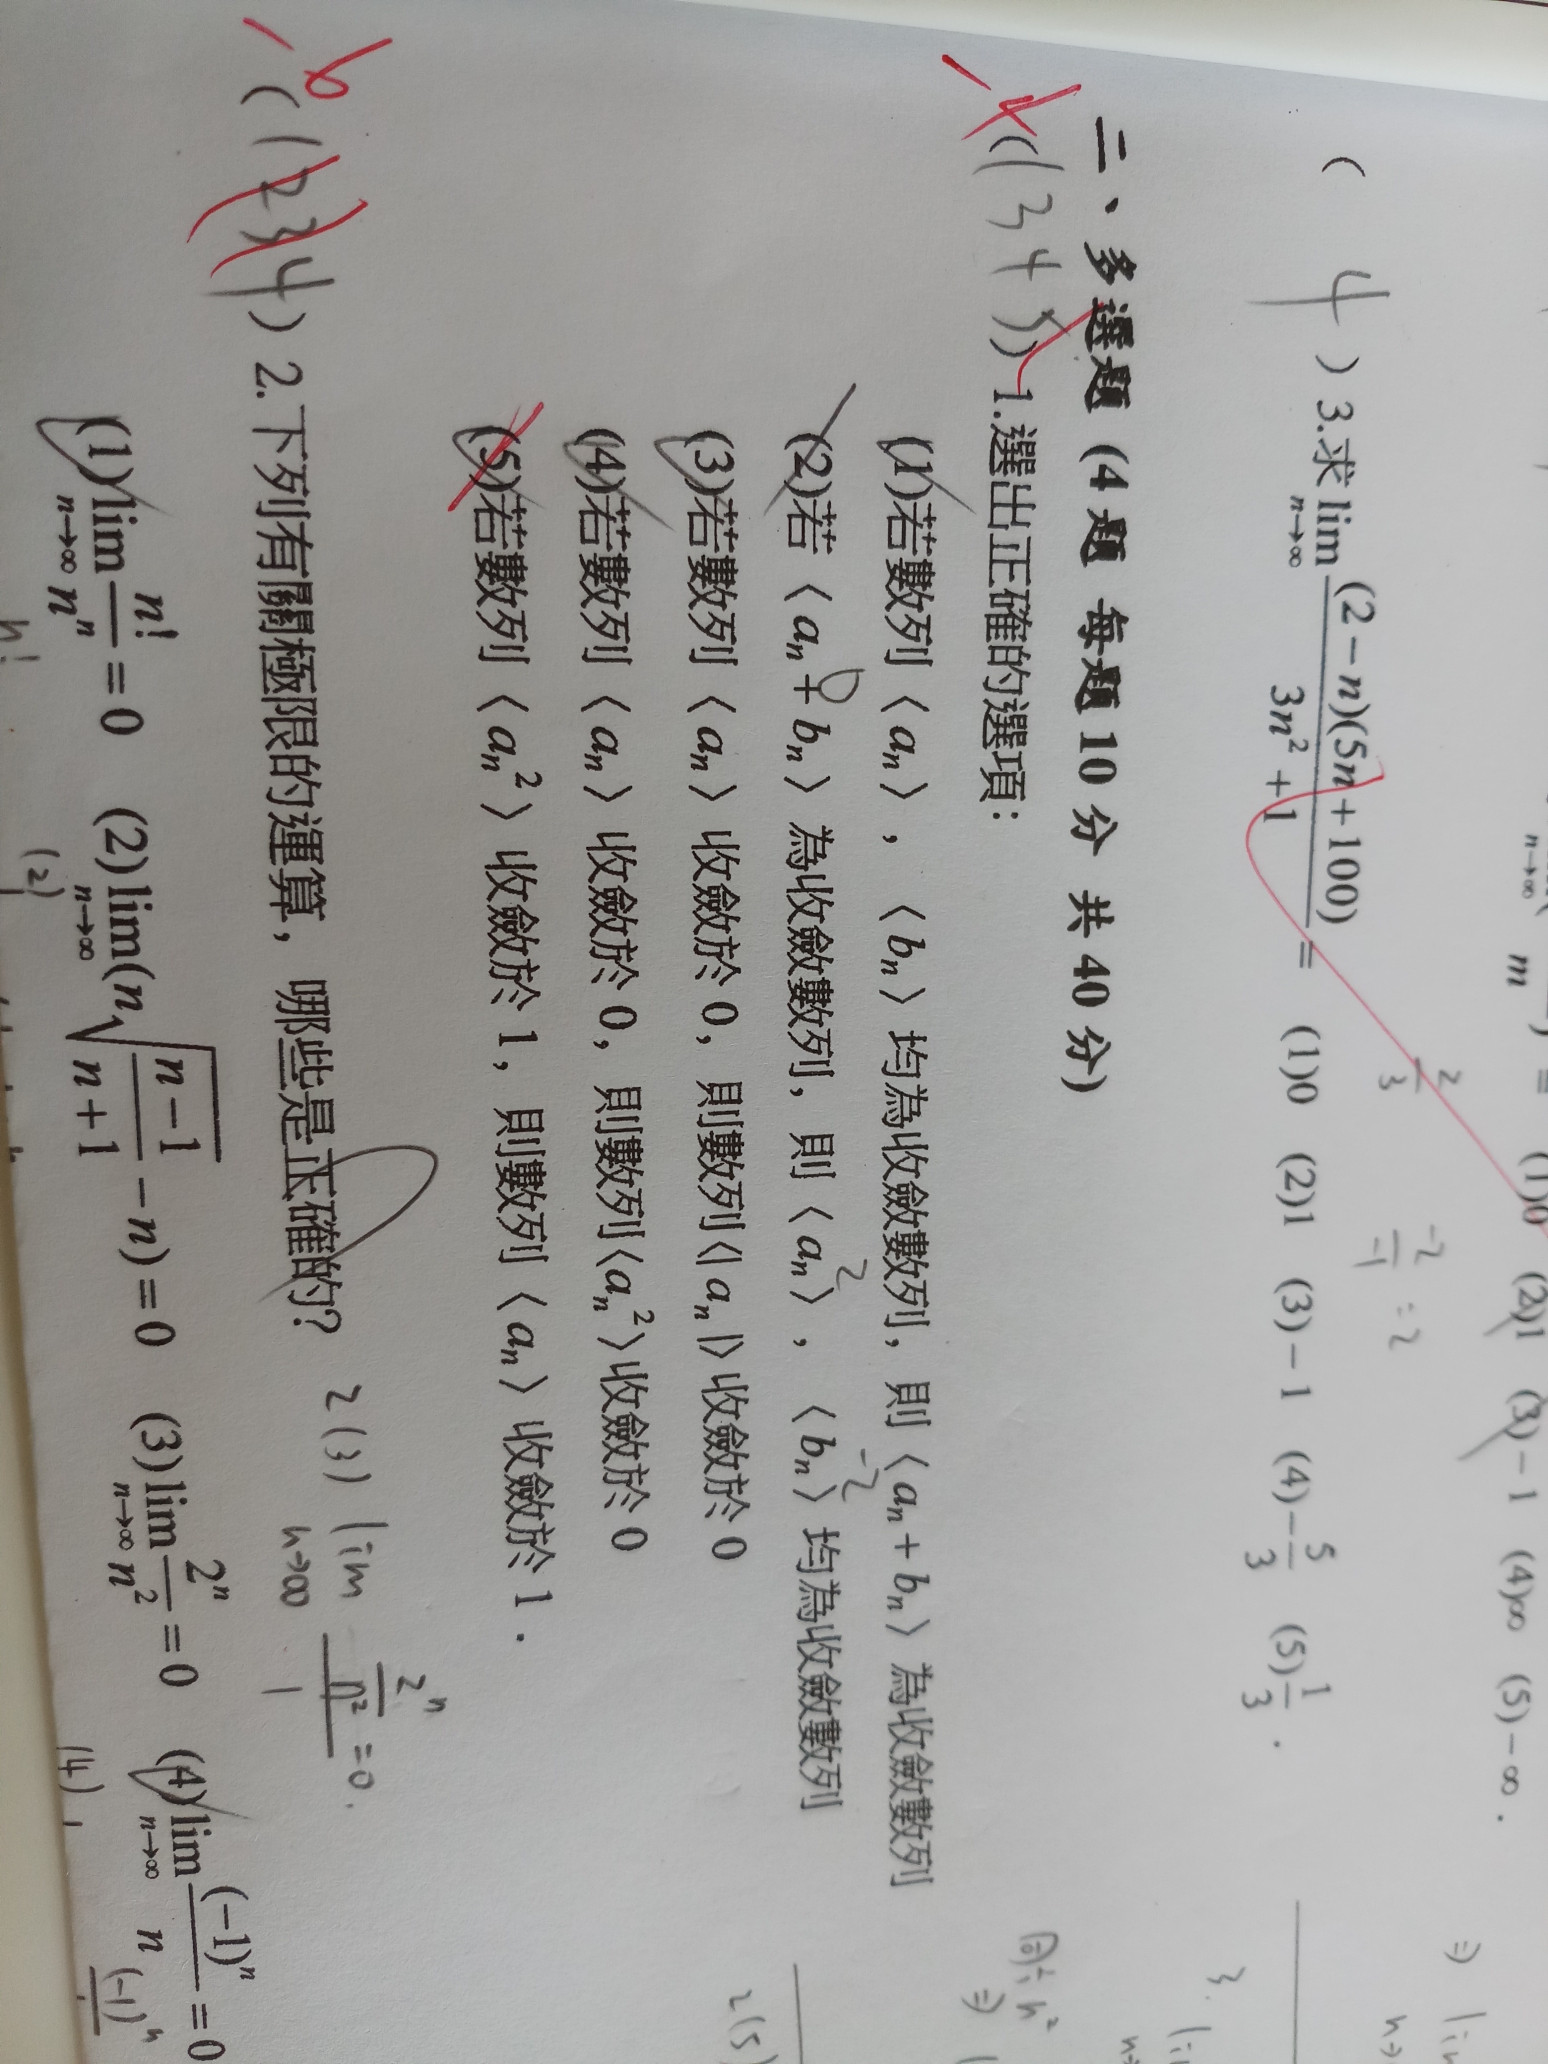 n→∞ m = (1)0 (2)1 (3)-1 (4)∞ (5)-∞.
( 4 ) 3.求 lim n→∞ (2-n)(5n+100)/(3n²+1) = (1)0 (2)1 (3)-1 (4)-5/3 (5)1/3 .
2/3 -2/-1 = 2
二、多選題 (4 題 每題 10 分 共 40 分)
-4
(1 3 4 5) 1.選出正確的選項:
(1)若數列〈aₙ〉,〈bₙ〉均為收斂數列,則〈aₙ+bₙ〉為收斂數列
0 2 -2
(2)若〈aₙ+bₙ〉為收斂數列,則〈aₙ〉,〈bₙ〉均為收斂數列
(3)若數列〈aₙ〉收斂於 0,則數列〈|aₙ|〉收斂於 0
(4)若數列〈aₙ〉收斂於 0,則數列〈aₙ²〉收斂於 0
(5)若數列〈aₙ²〉收斂於 1,則數列〈aₙ〉收斂於 1 .
-6
(1 2 3 4) 2.下列有關極限的運算,哪些是正確的?
2(3) lim n→∞ 2ⁿ/n²/1 = 0.
(1)lim n→∞ n!/nⁿ = 0 (2)lim n→∞ (n√((n-1)/(n+1)) - n) = 0 (3)lim n→∞ 2ⁿ/n² = 0 (4)lim n→∞ (-1)ⁿ/n = 0
n! (2) (4) (-1)ⁿ
⇒ lim n→
3. lim n→
同÷n²
⇒
2(5)